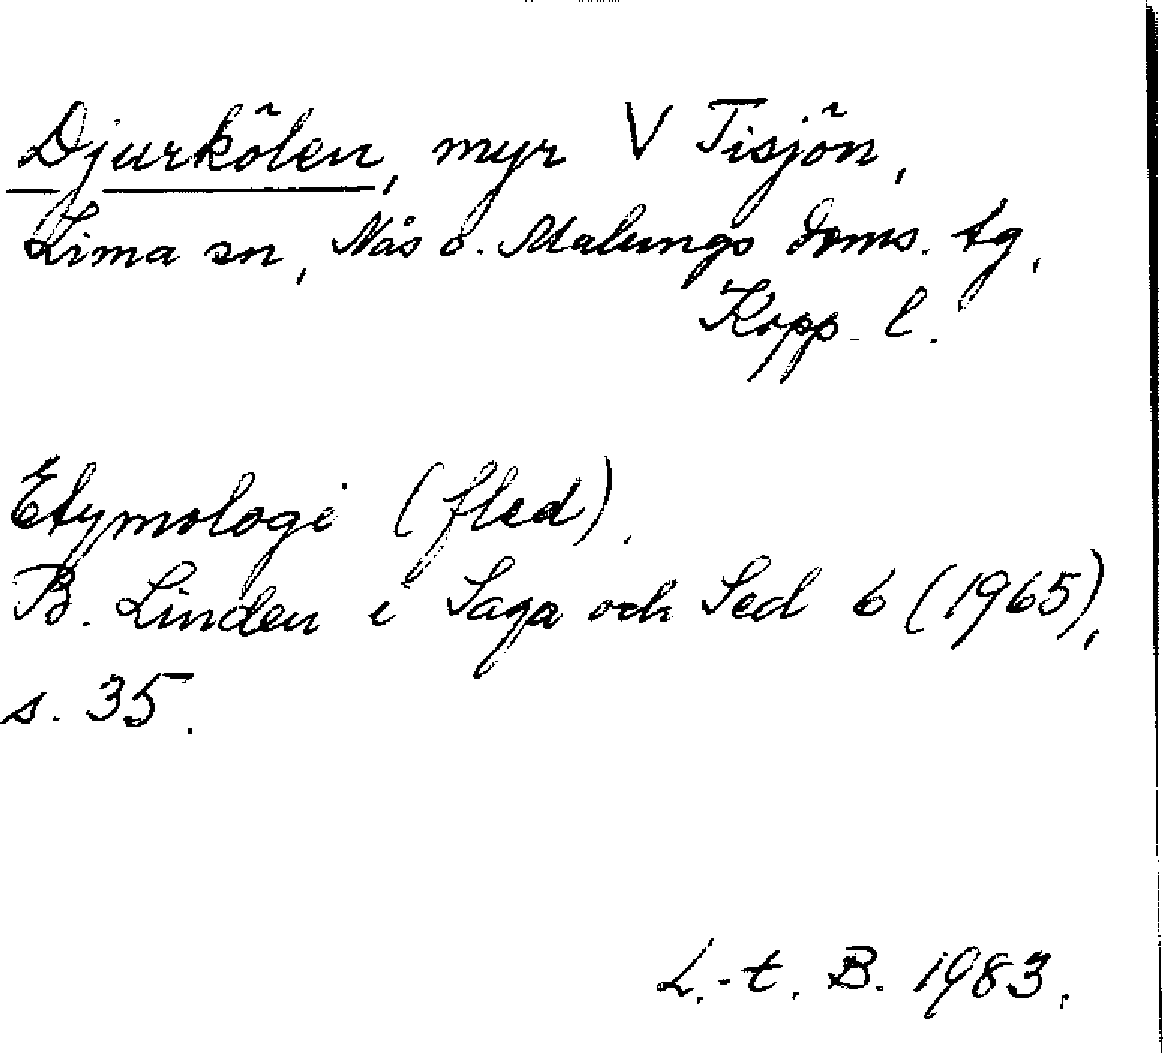 Djurkölen, myr V Tisjön,
Lima sn, Nås o. Malungs doms. tg,
Kopp. l.
Etymologi (fled).
B. Linden i Saga och Sed 6 (1965),
s. 35.
L.-t. B. 1983.